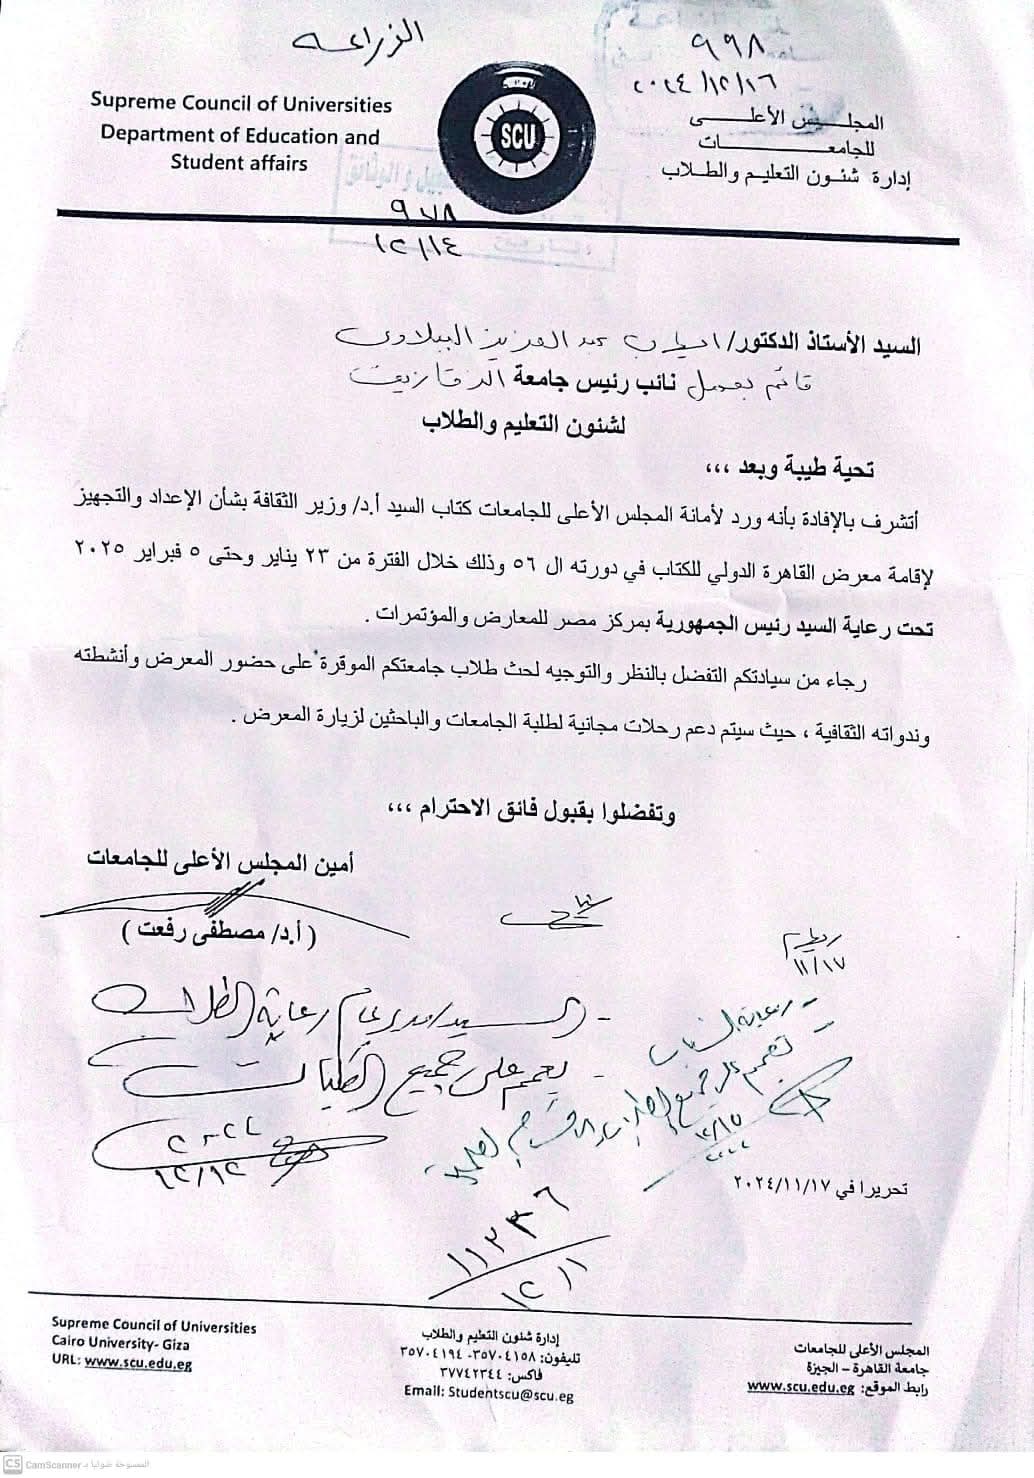 الزراعه
٩٩٨
٢٠٢٤/١٢/١٦
Supreme Council of Universities
Department of Education and
Student affairs
SCU
المجلس الأعلى
للجامعات
إدارة شئون التعليم والطلاب
٩٧٨
١٢/١٤
السيد الأستاذ الدكتور/ عبد العزيز الببلاوى
قائم بعمل نائب رئيس جامعة الزقازيق
لشئون التعليم والطلاب
تحية طيبة وبعد ،،،
أتشرف بالإفادة بأنه ورد لأمانة المجلس الأعلى للجامعات كتاب السيد أ.د/ وزير الثقافة بشأن الإعداد والتجهيز
لإقامة معرض القاهرة الدولي للكتاب في دورته ال ٥٦ وذلك خلال الفترة من ٢٣ يناير وحتى ٥ فبراير ٢٠٢٥
تحت رعاية السيد رئيس الجمهورية بمركز مصر للمعارض والمؤتمرات .
رجاء من سيادتكم التفضل بالنظر والتوجيه لحث طلاب جامعتكم الموقرة على حضور المعرض وأنشطته
وندواته الثقافية ، حيث سيتم دعم رحلات مجانية لطلبة الجامعات والباحثين لزيارة المعرض .
وتفضلوا بقبول فائق الاحترام ،،،
أمين المجلس الأعلى للجامعات
( أ.د/ مصطفى رفعت )
١١/١٧
- السيد / مدير عام رعاية الطلاب
- يعمم على جميع الكليات
١٢/١٢
- رعاية الشباب
- تعمم على جميع
تحريرا في ٢٠٢٤/١١/١٧
١١٢٣٦
١٢/١
Supreme Council of Universities
Cairo University- Giza
URL: www.scu.edu.eg
إدارة شئون التعليم والطلاب
تليفون: ٣٥٧٠٤١٥٨- ٣٥٧٠٤١٩٤
فاكس: ٣٧٧٤٢٣٤٤
Email: Studentscu@scu.eg
المجلس الأعلى للجامعات
جامعة القاهرة – الجيزة
رابط الموقع: www.scu.edu.eg
CS CamScanner الممسوحة ضوئيا بـ